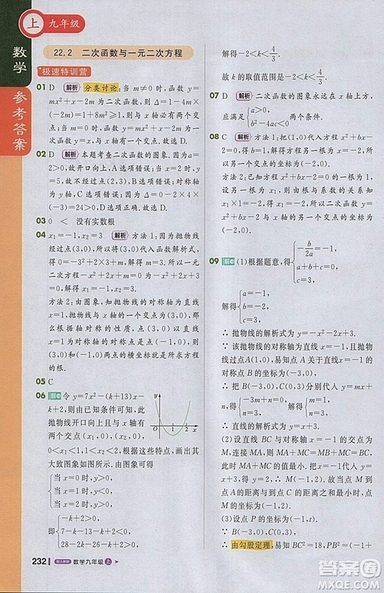 上 九年级
数学
参考答案
22.2 二次函数与一元二次方程
极速特训营
01 D 解析 分类讨论:当 m≠0 时,函数 y=
mx²+x-2m 为二次函数,则 Δ=1-4m×
(-2m)=8m²+1>0,则与 x 轴必有两个交
点;当 m=0 时,函数 y=mx²+x-2m 为一次
函数,y=x 与 x 轴有一个交点.故选 D.
02 D 解析 本题考查二次函数的图象.因为 a=
2>0,故开口向上,A 选项错误;当 x=2 时,y=
5,故不经过点(2,3),B 选项错误;对称轴
为 y 轴,C 选项错误;因为 Δ=0-2×4×
(-3)=24>0,D 选项正确.故选 D.
03 0 < 没有实数根
04 x₁=-1,x₂=3 解析 方法1:因为抛物线
经过点(3,0),所以将(3,0)代入函数解析式,
得 0=-3²+2×3+m,解得 m=3,所以一元
二次方程-x²+2x+m=0 为-x²+2x+3
=0,解得 x₁=-1,x₂=3.
方法2:由图象,知抛物线的对称轴为直线
x=1,抛物线与 x 轴的一个交点为(3,0),那
么根据对称的性质,另一个交点与点(3,0)
关于直线 x=1 的对称点是点(-1,0),则点
(3,0)和(-1,0)两点的横坐标就是所求方程
的根.
05 C
06 解 令 y=7x²-(k+13)x-
k+2,则由已知条件可知,此
抛物线开口向上且与 x 轴有
两个交点(x₁,0),(x₂,0),
0<x₁<1,1<x₂<2.由这些特点,画出其
大致图象如图所示.由图象可得
当 x=0 时,y>0,
当 x=1 时,y<0,
当 x=2 时,y>0,
即
-k+2>0,
7-k-13-k+2<0,
28-2k-26-k+2>0,
解得-2<k<4/3.
故 k 的取值范围是-2<k<4/3.
07 D 解析 二次函数的图象永远在 x 轴上方,
应满足
a>0,
b²-4ac<0.
08 C 解析 方法1:把 x=1 代入方程 x²+bx-
2=0,得 1+b-2=0,解得 b=1,所以方程是
x²+x-2=0,解得 x₁=-2,x₂=1,所以它的
另一个交点的坐标是(-2,0).
方法2:x²+bx-2=0 的一个根为 x=1,
设另一根为 x₁,则由根与系数的关系知
x₁×1=-2,则 x₁=-2,所以它与 x 轴的另
一个交点坐标为(-2,0).
09 解 (1)根据题意,得
-b/2a=-1,
a+b+c=0,
c=3,
解得
a=-1,
b=-2,
c=3,
∴ 抛物线的解析式为 y=-x²-2x+3.
∵ 该抛物线的对称轴为直线 x=-1,且抛物
线经过 A(1,0),易知点 A 关于直线 x=-1 的
对称点 B 的坐标为(-3,0).
∴ 把 B(-3,0),C(0,3)分别代入 y=mx+
n,得
-3m+n=0,
n=3,
解得
m=1,
n=3,
∴ 直线的解析式为 y=x+3.
(2)设直线 BC 与对称轴 x=-1 的交点为
M,连接 MA,则 MA=MB,MA+MC=MB+MC=BC,
此时 MA+MC 的值最小.故此时点 M 到
点 A 的距离与到点 C 的距离之和最小,时点
M 的坐标为(-1,2).
(3)设 P(-1,t),
∵ B(-3,0),C(0,3),
∴ 由勾股定理,易知 BC²=18,PB²=(-1
232 数学九年级 上
答案圈